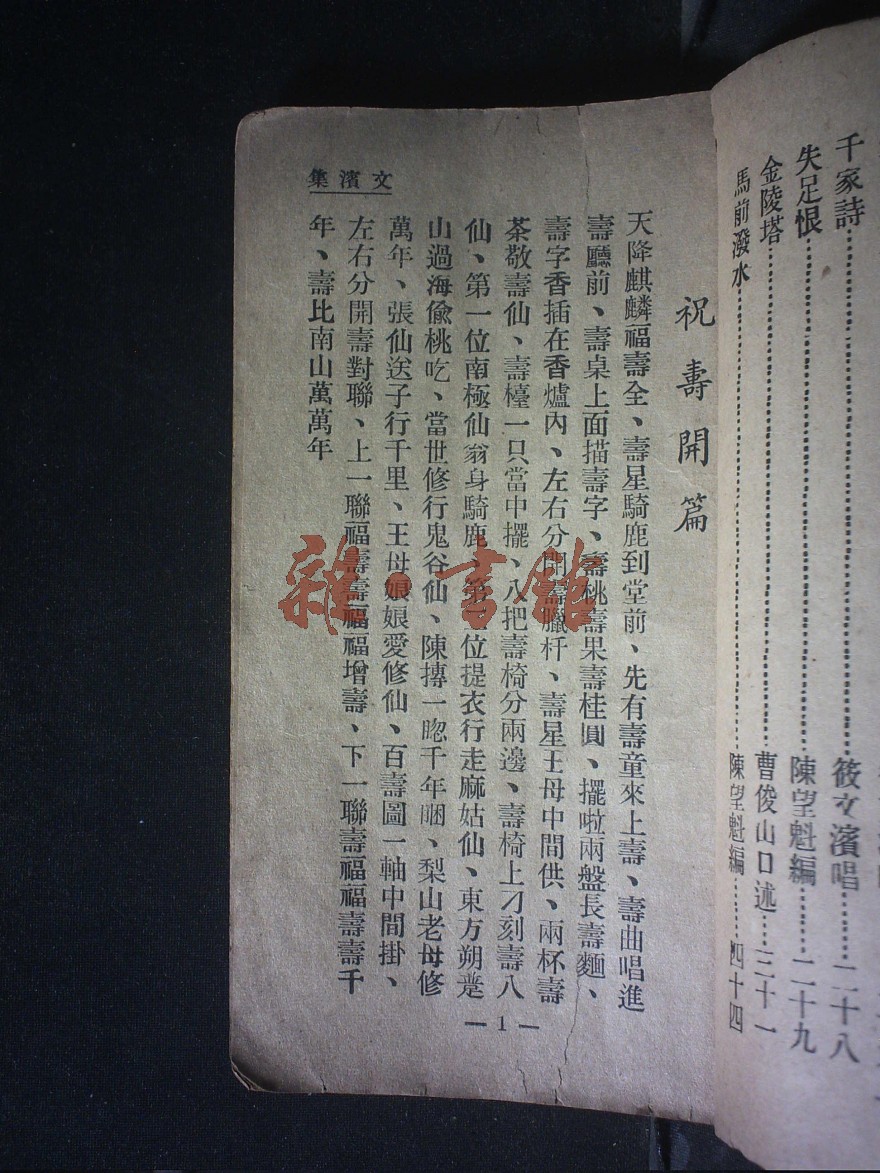 千家詩……筱文濱唱……二十八
失足恨……陳望魁編……二十九
金陵塔……曹俊山口述…三十一
馬前潑水……陳望魁編……四十四
祝壽開篇
天降麒麟福壽全、壽星騎鹿到堂前、先有壽童來上壽、壽曲唱進
壽廳前、壽桌上面描壽字、壽桃壽果壽桂圓、擺啦兩盤長壽麵、
壽字香插在香爐內、左右分開壽臘杆、壽星王母中間供、兩杯壽
茶敬壽仙、壽檯一只當中擺、八把壽椅分兩邊、壽椅上刁刻壽八
仙、第一位南極仙翁身騎鹿、第二位提衣行走麻姑仙、東方朔躉
山過海偸桃吃、當世修行鬼谷仙、陳摶一晼千年睏、梨山老母修
萬年、張仙送子行千里、王母娘娘愛修仙、百壽圖一軸中間掛、
左右分開壽對聯、上一聯福壽壽福福增壽、下一聯壽福福壽壽千
年、壽比南山萬萬年
文濱集
— 1 —
雜·書館